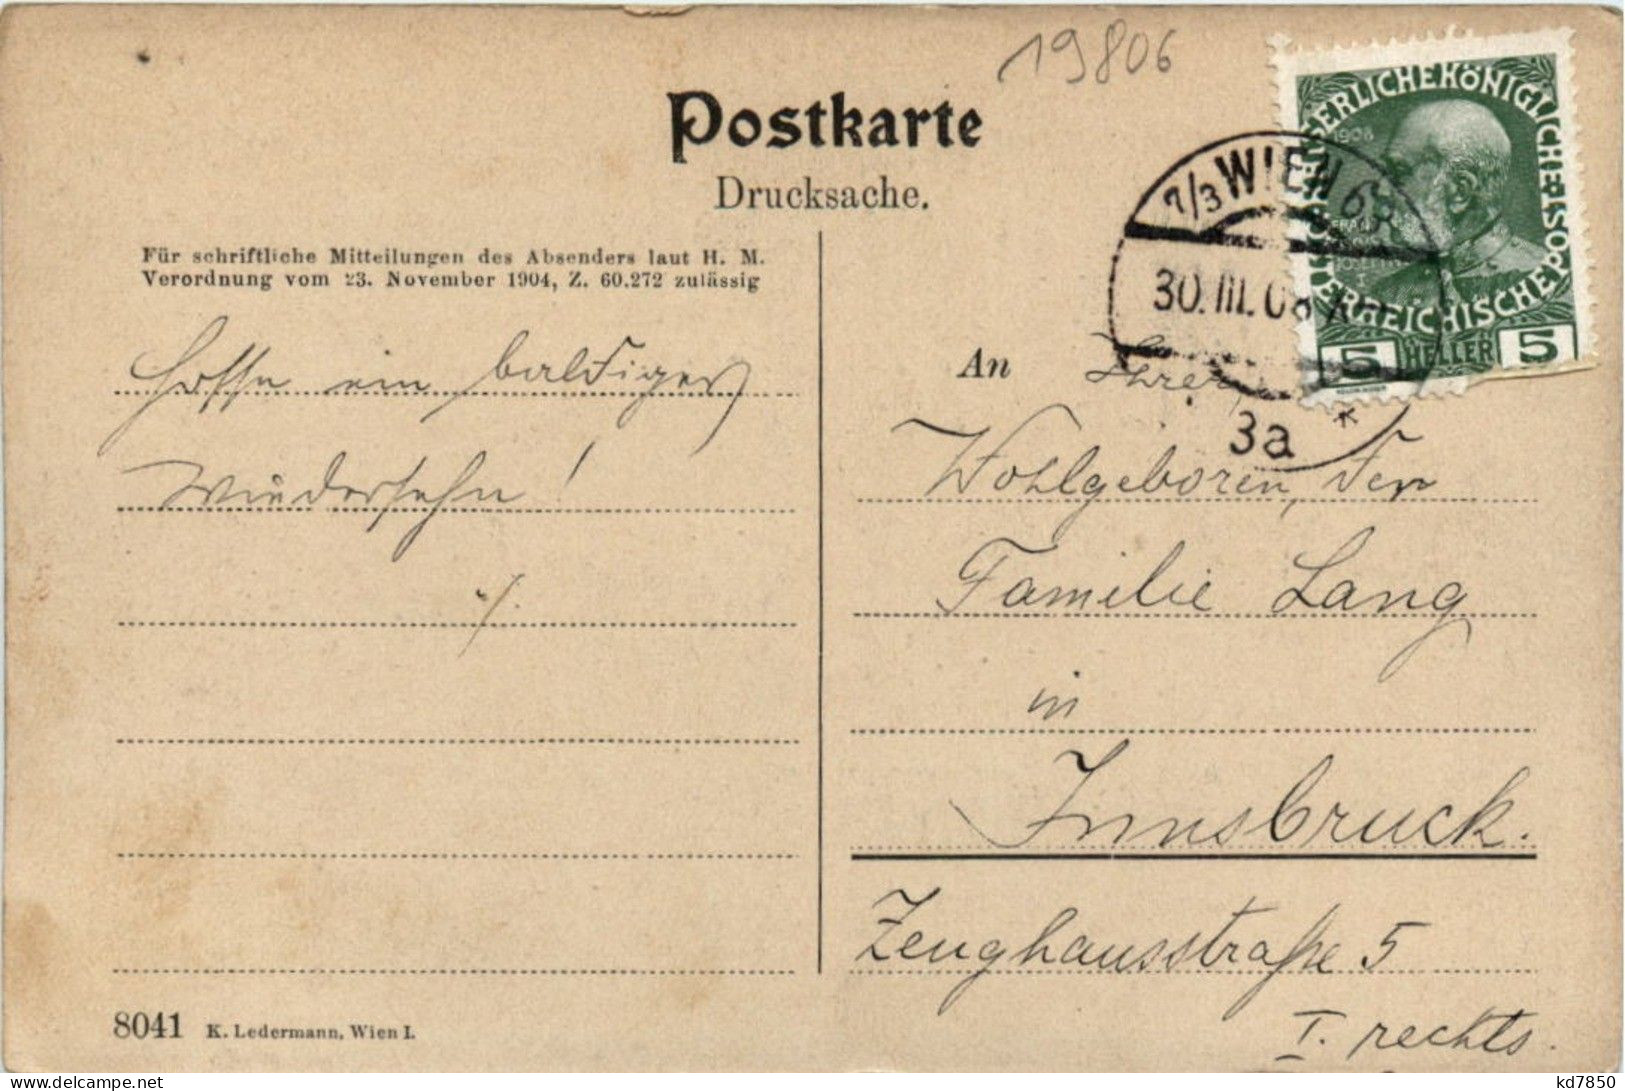 19806
Postkarte
Drucksache.
Für schriftliche Mitteilungen des Absenders laut H. M.
Verordnung vom 23. November 1904, Z. 60.272 zulässig
KAISERLICHE KÖNIGLICHE ÖSTERREICHISCHE POST
1908
5 HELLER 5
7/3 WIEN 63
30.III.08
3a
*
Hoffe ein baldiges
Wiedersehn!
./.
An Ihrer
Wohlgeboren, der
Familie Lang
in
Innsbruck.
Zeughausstraße 5
I. rechts.
8041 K. Ledermann, Wien I.
kd7850